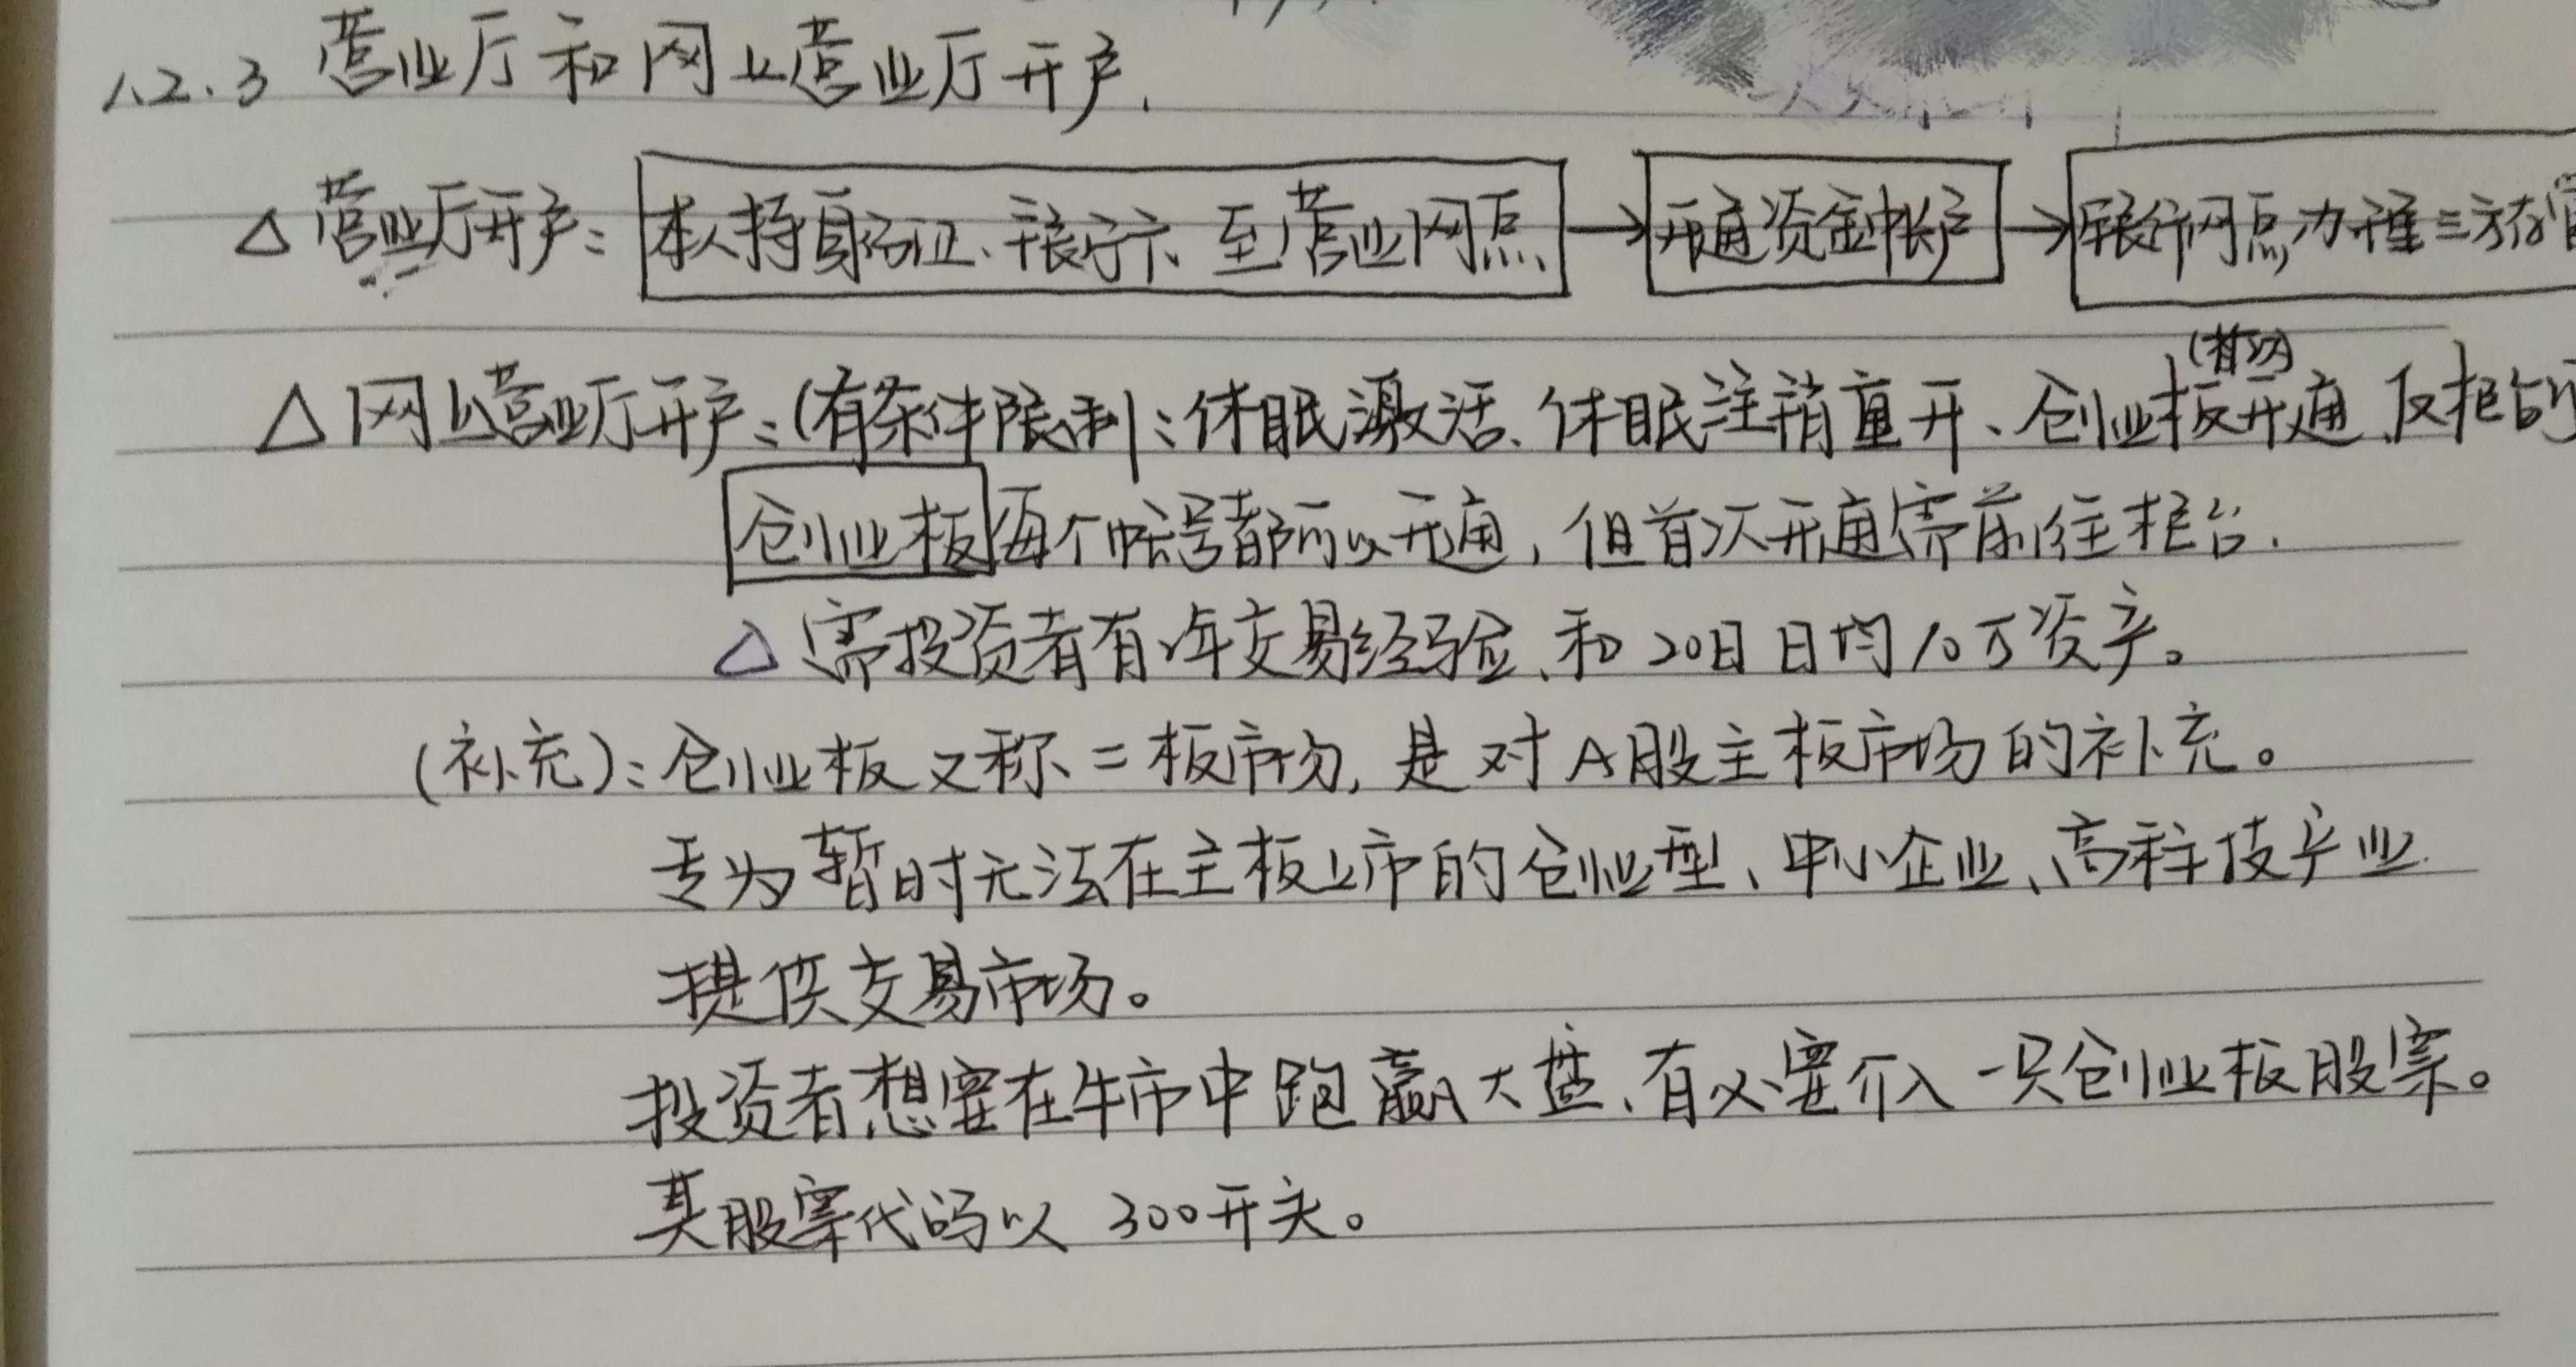 1.2.3 营业厅和网上营业厅开户.
△ 营业厅开户: 本人持身份证、银行卡 至营业网点 → 开通资金帐户 → 银行网点办理三方存管
(首次)
△ 网上营业厅开户: (有条件限制: 休眠激活、休眠注销重开、创业板开通 仅柜台
创业板 每个帐号都可以开通, 但首次开通需前往柜台.
△ 需投资者有2年交易经验、和20日日均10万资产。
(补充): 创业板又称二板市场, 是对A股主板市场的补充。
专为暂时无法在主板上市的创业型、中小企业、高科技产业
提供交易市场。
投资者想要在牛市中跑赢大盘、有必要介入一只创业板股票。
其股票代码以 300开头。